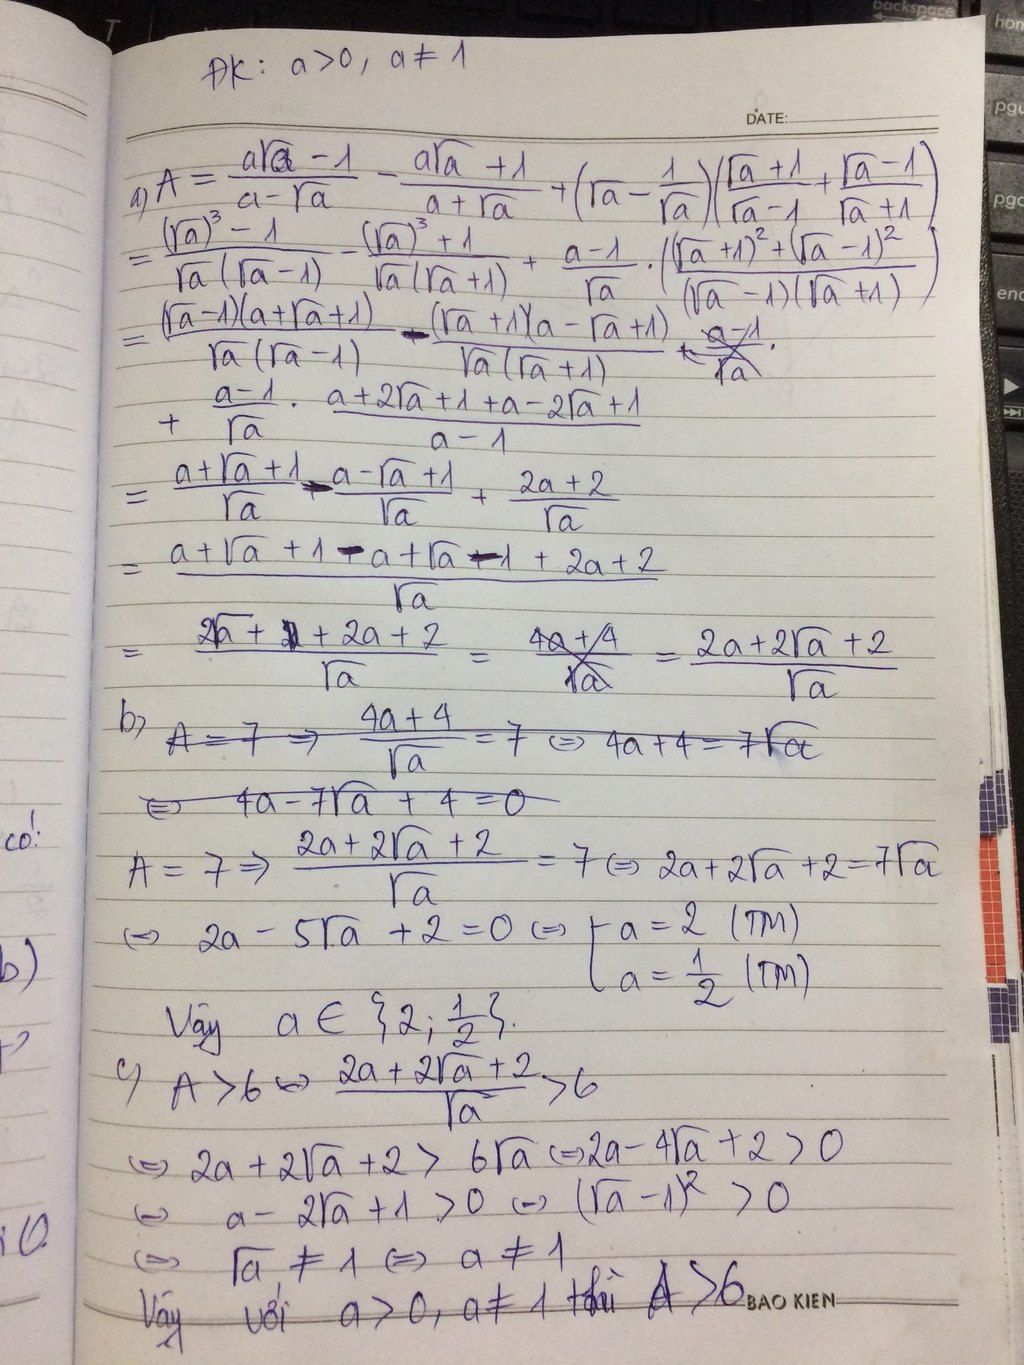 backspace
T
home
pgup
pgdn
end
ĐK: a>0, a≠1
DATE:
a) A = (a√a - 1)/(a - √a) - (a√a + 1)/(a + √a) + (√a - 1/√a)((√a + 1)/(√a - 1) + (√a - 1)/(√a + 1))
= ((√a)³ - 1)/(√a(√a - 1)) - ((√a)³ + 1)/(√a(√a + 1)) + (a - 1)/√a . ((√a + 1)² + (√a - 1)²)/((√a - 1)(√a + 1))
= (√a - 1)(a + √a + 1)/(√a(√a - 1)) - (√a + 1)(a - √a + 1)/(√a(√a + 1)) + (a - 1)/√a .
+ (a - 1)/√a . (a + 2√a + 1 + a - 2√a + 1)/(a - 1)
= (a + √a + 1)/√a - (a - √a + 1)/√a + (2a + 2)/√a
= (a + √a + 1 - a + √a - 1 + 2a + 2)/√a
= (2√a + 2a + 2)/√a = (4a + 4)/√a = (2a + 2√a + 2)/√a
b) A = 7 ⇒ (4a + 4)/√a = 7 ⇔ 4a + 4 = 7√a
⇔ 4a - 7√a + 4 = 0
A = 7 ⇒ (2a + 2√a + 2)/√a = 7 ⇔ 2a + 2√a + 2 = 7√a
⇔ 2a - 5√a + 2 = 0 ⇔ [ a = 2 (TM)
a = 1/2 (TM)
Vậy a ∈ {2; 1/2}.
c) A > 6 ⇔ (2a + 2√a + 2)/√a > 6
⇔ 2a + 2√a + 2 > 6√a ⇔ 2a - 4√a + 2 > 0
⇔ a - 2√a + 1 > 0 ⇔ (√a - 1)² > 0
⇔ √a ≠ 1 ⇔ a ≠ 1
Vậy với a > 0, a ≠ 1 thì A > 6
BAO KIEN
có:
b)